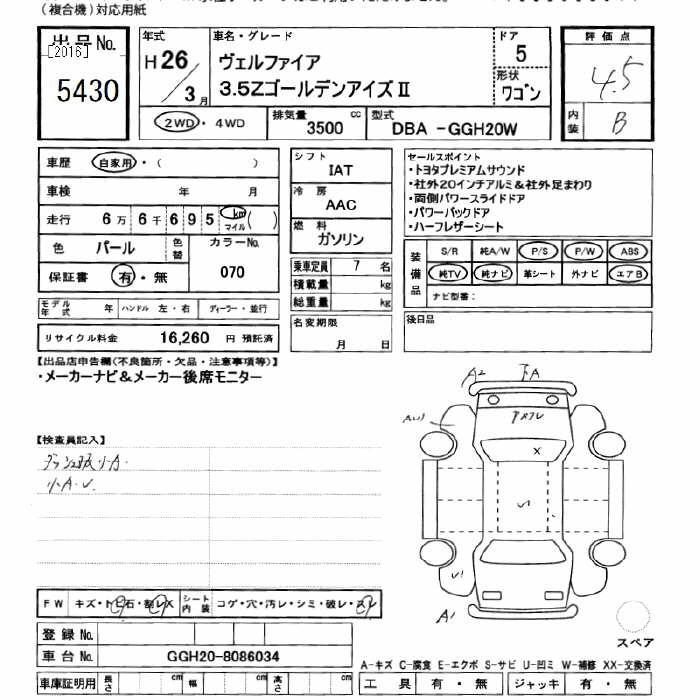 (複合機)対応用紙
出品No.
[2016]
5430
年式
H26/3月
車名・グレード
ヴェルファイア
3.5ZゴールデンアイズⅡ
ドア
5
形状
ワゴン
評価点
4.5
内装
B
2WD・4WD
排気量
3500 cc
型式
DBA -GGH20W
車歴 自家用・( )
車検 年 月
走行 6万6千695 km マイル ( )
色 パール 色替
カラーNo. 070
保証書 有・無
シフト
IAT
冷房
AAC
燃料
ガソリン
乗車定員 7 名
積載量 kg
総重量 kg
セールスポイント
・トヨタプレミアムサウンド
・社外20インチアルミ&社外足まわり
・両側パワースライドドア
・パワーバックドア
・ハーフレザーシート
装備品
S/R 純A/W P/S P/W ABS
純TV 純ナビ 革シート 外ナビ エアB
ナビ型番:
モデル年式 年 ハンドル 左・右 ディーラー・並行
リサイクル料金 16,260 円 預託済
名変期限
月 日
後日品
【出品店申告欄(不良箇所・欠品・注意事項等)】
・メーカーナビ&メーカー後席モニター
【検査員記入】
小A.
小A.U.
A2
A
AU1
X
U1
A1
FW キズ・トビ石・割レX シート内装 コゲ・穴・汚レ・シミ・破レ・スレ
登録No.
車台No. GGH20-8086034
車庫証明用 長さ cm 幅 cm 高さ cm
スペア
A-キズ C-腐食 E-エクボ S-サビ U-凹ミ W-補修 XX-交換済
工具 有・無 ジャッキ 有・無